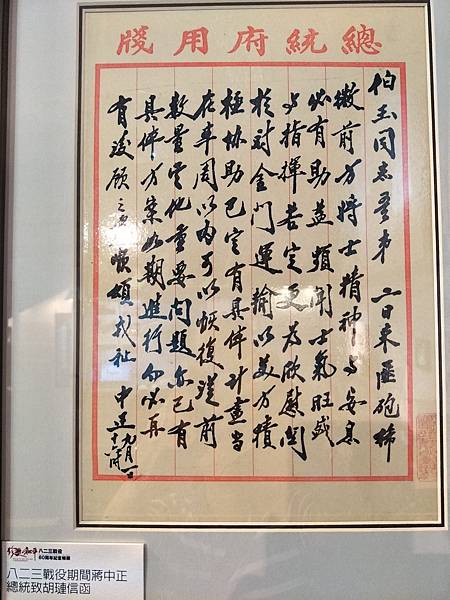 總統府用牋
伯玉同志吾弟 二日來匪砲稀
微前方將士精神與安息
必有助益頃聞士氣旺盛
與指揮若定更為欣慰關
於對金門運輸以美方積
極協助已定有具体計畫當
在半周以內可以恢復從前
數量其他重要問題亦已有
具体方案如期進行勿必再
有後顧之慮順頌戎祉 中正 九月一日
八二三戰役
60周年紀念特展
八二三戰役期間蔣中正
總統致胡璉信函